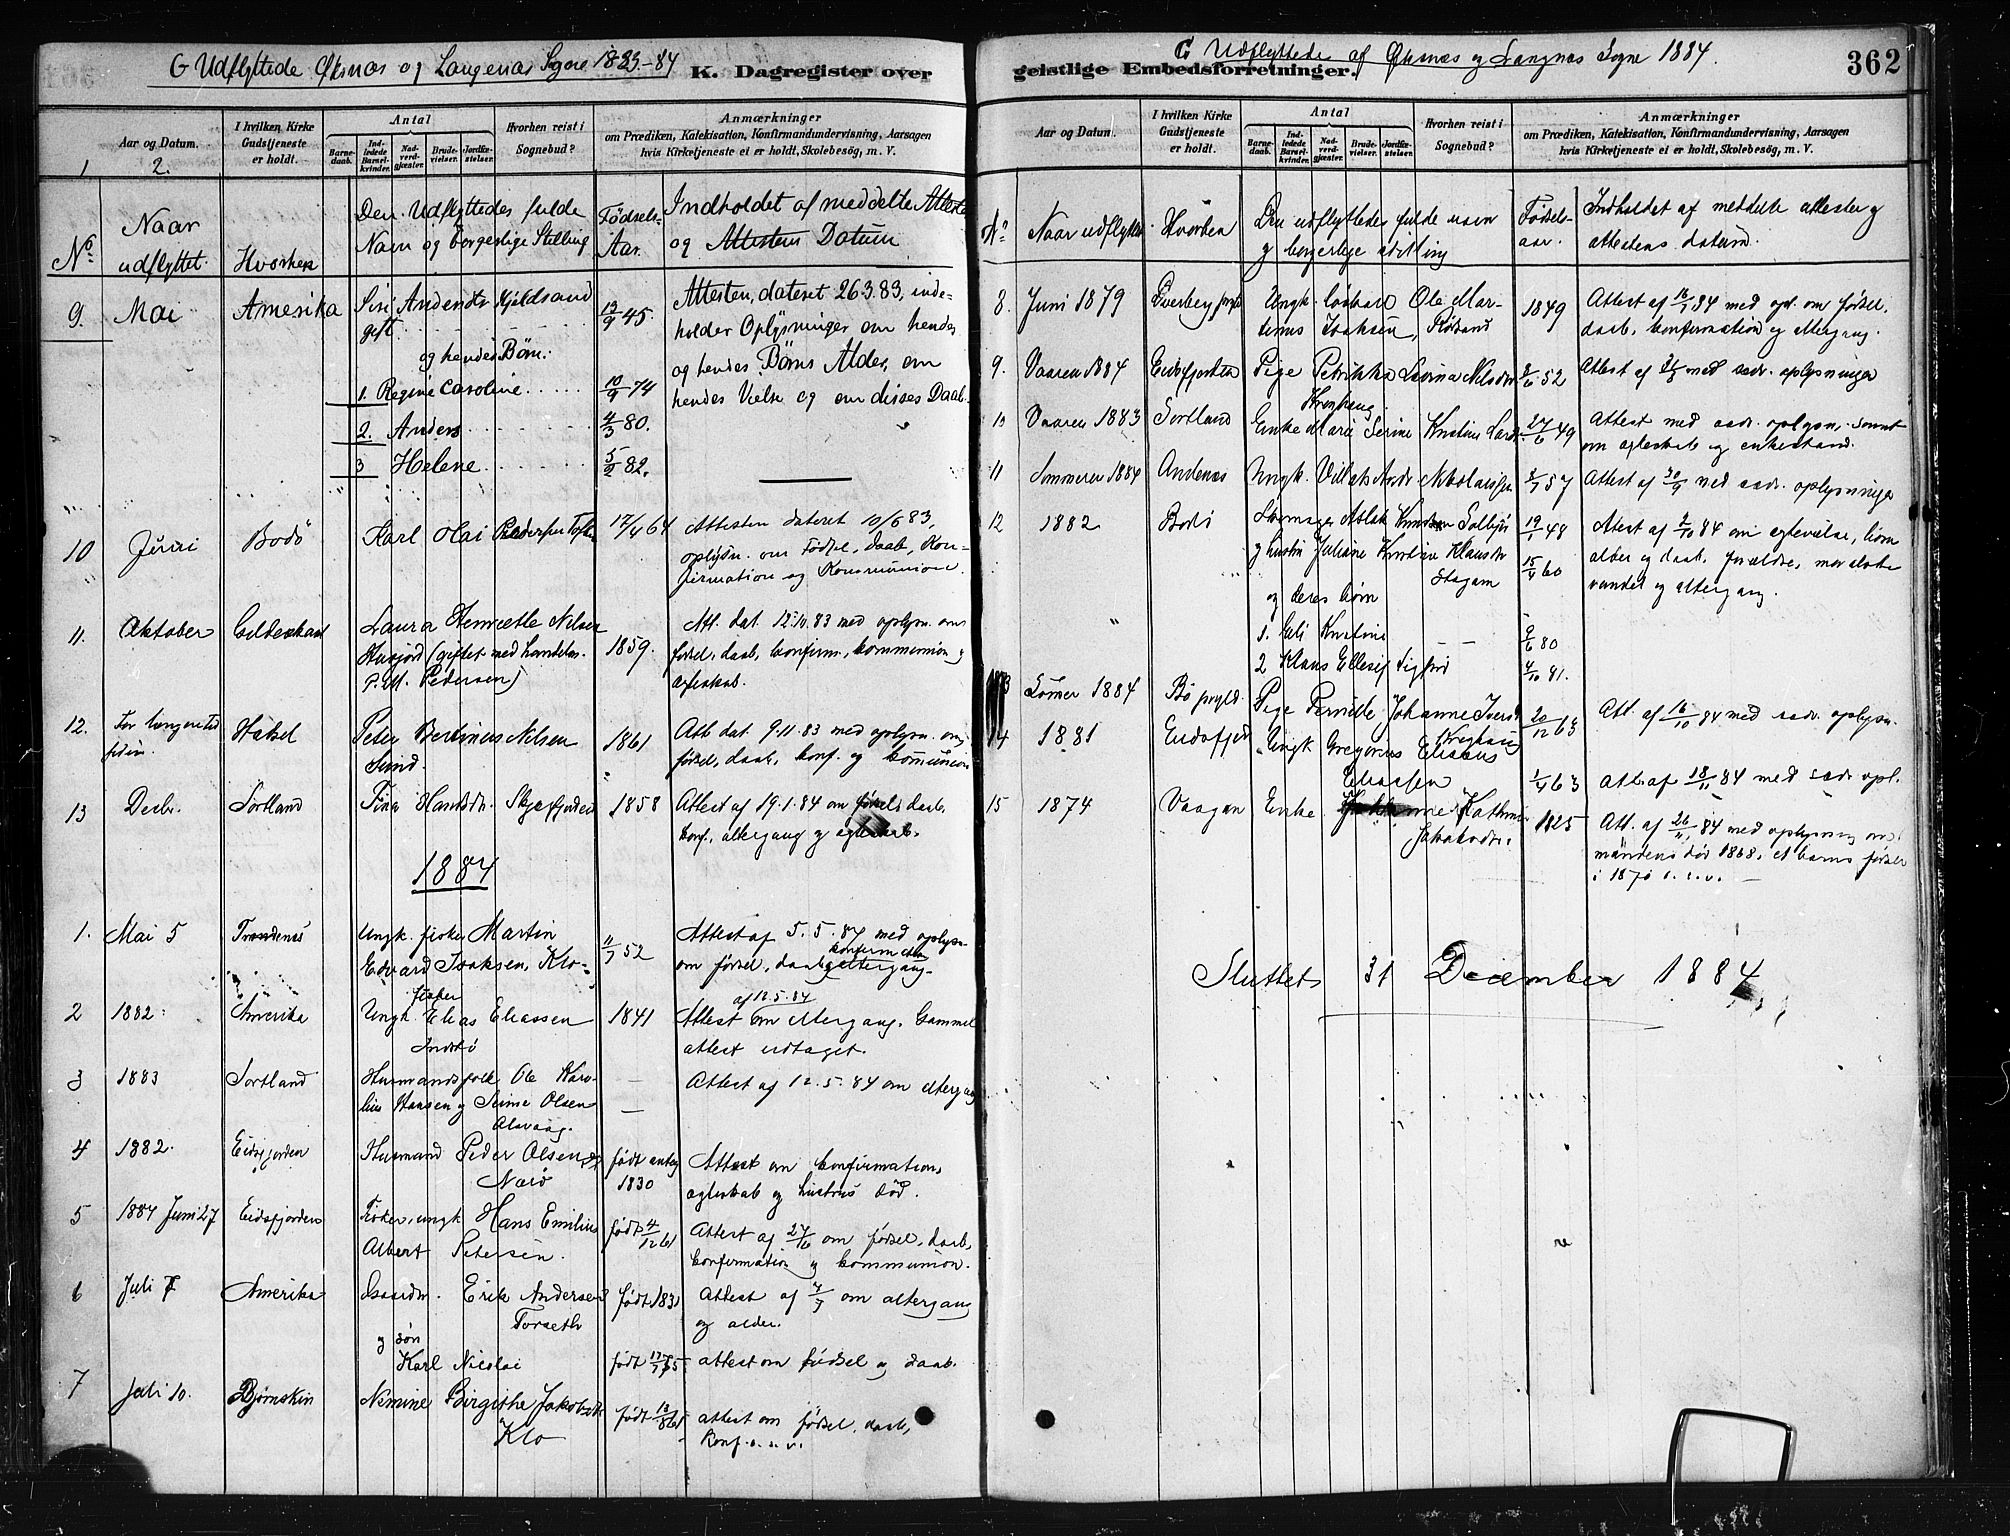 G Udflyttede Øksnæs og Langenæs Sogne 1883.-84
K. Dagregister over
Aar og Datum.
I hvilken Kirke Gudstjeneste er holdt.
Antal
Barnedaab.
Indledede Barselkvinder.
Nadverdgjæster.
Brudevielser.
Jordfæstelser.
Hvorhen reist i Sognebud?
Anmærkninger
om Prædiken, Katekisation, Konfirmandundervisning, Aarsagen
hvis Kirketjeneste ei er holdt, Skolebesøg, m. V.
1
2.
No
Naar udflyttet.
Hvorhen
Den Udflyttedes fulde
Navn og borgerlige Stilling
Fødsels-
Aar.
Indholdet af meddelte Atteste
og Attestens Datum
9.
Mai
Amerika
Siri Andersdr Kjeldsand
gift.
13/9 45.
Attesten, dateret 26.3.83, inde-
holder Oplysninger om hendes
og hendes Børn:
og hendes Børns Alder, om
1. Regine Caroline
10/9 74
hendes Vielse og om disses Daab.
2. Anders
4/3 80.
3 Helene
5/2 82.
10
Juni
Bodö
Karl Olai Pedersen
17/4 64
Attesten dateret 10/6 83,
oplysn. om Fødsel, Daab, Kon-
firmation og Kommunion.
11.
Oktober
Gildeskaal
Laura Henriette Nilsen
(giftet med handelsm.
P. M. Pedersen)
1859.
Att. dat. 12.10.83 med oplysn. om
fødsel, daab, konfirm., kommunion og
ægteskab.
12.
For længere tid
siden.
Hadsel
Peter Bertinus Nilsen
Sund.
1861
Att. dat. 9.11.83 med oplysn. om
fødsel, daab, konf. og kommunion
13
Decbr.
Sortland
Tina Hansdr. Skjærfjorden
1858
Attest af 19.1.84 om fødsel, daab,
konf., altergang og ægteskab.
1884
1.
Mai 5
Trondenes
Ungk. fisker Martin
Edvard Isaksen, Klo
11/7 52
Attest af 5.5.84 med oplysn.
konfirmation
om fødsel, daab og altergang.
2
1882.
Amerika
fisker
Ungk. Elias Eliassen
1841
af 12.5.84
Attest om altergang. Gammel
attest udtaget.
3
1883
Sortland
Husmandsfolk Ole Karo-
lius Hansen og Olsen
Alsvaag.
Attest af 12.5.84 om altergang
4
1882.
Eidsfjorden
Husmand Peder Olsen
født antag
1830
Attest om konfirmation,
ægteskab og hustrus død.
5
1884 Juni 27
Eidsfjorden
Fisker, ungk Hans Emilius
Albert Petersen.
født 4/12 61
Attest af 27/6 om fødsel, daab,
konfirmation og kommunion.
6
Juli 7
Amerika
Erik Andersen
Torseth
født 1831
Attest af 7/7 om altergang
og alder.
og søn
Karl Nicolai
attest om fødsel og daab.
7
Juli 10.
Bjørnskin
Nimine Birgithe Jakobsdr
Klo
attest om fødsel, daab,
konf. o.s.v.
G Udflyttede af Øksnæs og Langnæs Sogne 1884.
geistlige Embedsforretninger.
362
Aar og Datum.
I hvilken Kirke Gudstjeneste er holdt.
Antal
Barnedaab.
Indledede Barselkvinder.
Nadverdgjæster.
Brudevielser.
Jordfæstelser.
Hvorhen reist i Sognebud?
Anmærkninger
om Prædiken, Katekisation, Konfirmandundervisning, Aarsagen
hvis Kirketjeneste ei er holdt, Skolebesøg, m. V.
No
Naar udflyttet
Hvorhen
Den udflyttedes fulde navn
og borgerlige stilling
Fødsel-
aar.
Indholdet af meddelte attester og
attestens datum.
8.
Juni 1879
Dverberg prgld
Ungk. Ole Mar-
tinus Isaksen,
1849
Attest af 16/7 84 med opl. om fødsel,
daab, konfirmation og altergang.
9.
Vaaren 1884
Eidsfjorden
Pige Petrikka Lovina Nilsdr.
52
Attest af med sædv. oplysninger
Vaaren 1883
Sortland
Enke Marie Serine Kristine
27/6 49
Attest med sædv. oplysn., samt
om ægteskab og enkestand.
11
Sommeren 1884
Andenæs
Ungk. Nikolaissen
57
Attest af 30/9 med sædv. oplysninger
12
1882
Bodø
Knudsen
19/1 48
Attest af 84 om ægtevielse, børns
og hustru Juliane Karoline Klausdr
15/4 60
alder og daab, forældre,
vandel og altergang.
og deres børn
1. Kristine
80
2 Klaus Ellesif Sigfrid
4/10 81.
13
Sommer 1884
Bø prgld.
Pige Pernille Johanne Iversdr
20/12 63
Att. af 16/10 84 med sædv. oplysn.
14
1881
Eidsfjord
Ungk Gregorius Elisæus
Eliassen
1/4 63
Att. af 18/11 84 med sædv. opl.
15
1874
Vaagan
Enke
Jakobsdr.
1825
Att. af 26/11 84 med oplysning om
mandens død 1868, et barns fødsel
i 1870 o.s.v.
Sluttet 31 December 1884